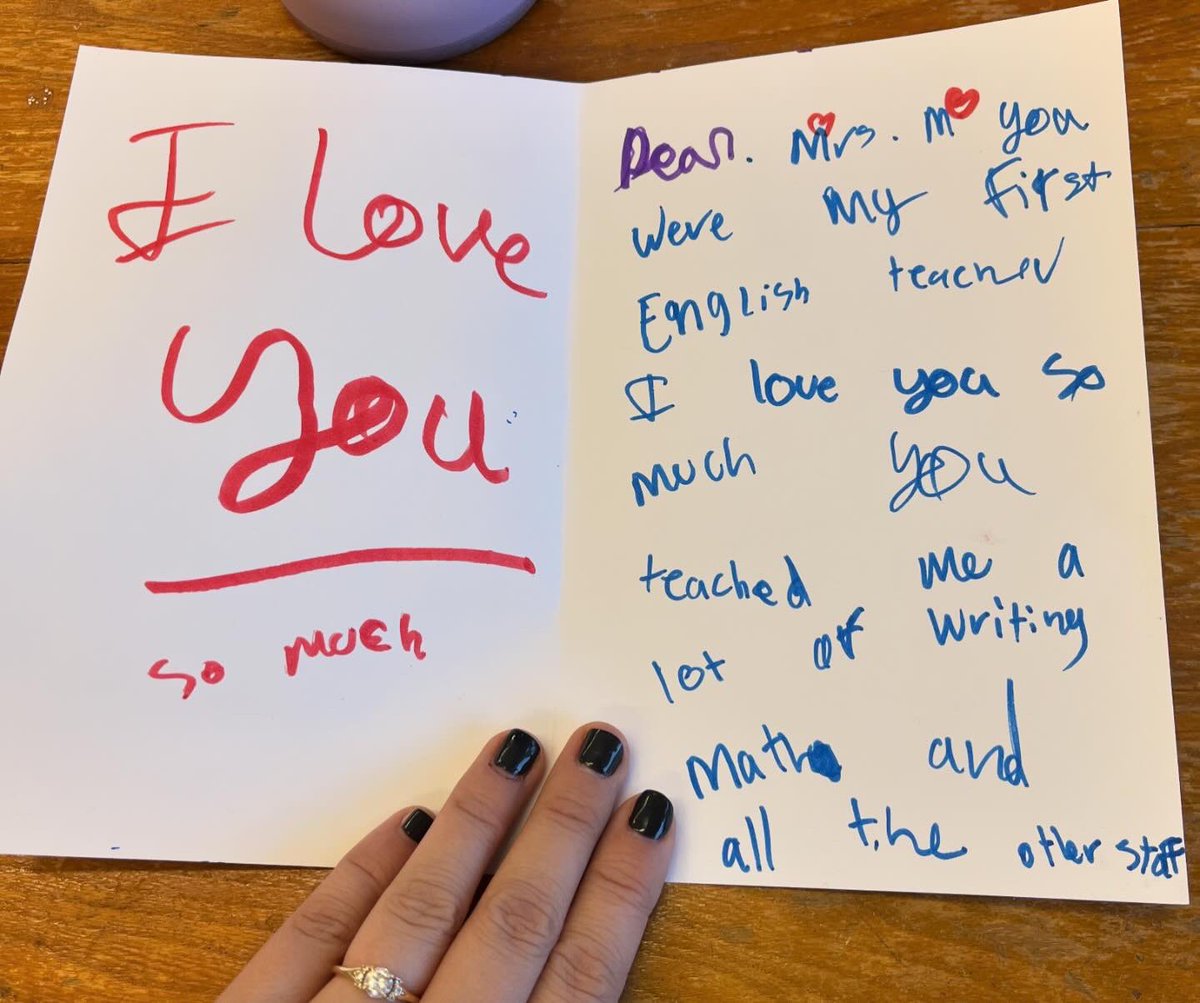 I love
you
so much
Dear. Mrs. M you
were my first
English teacher
I love you so
much you
teached me a
lot of writing
math and
all the other staff